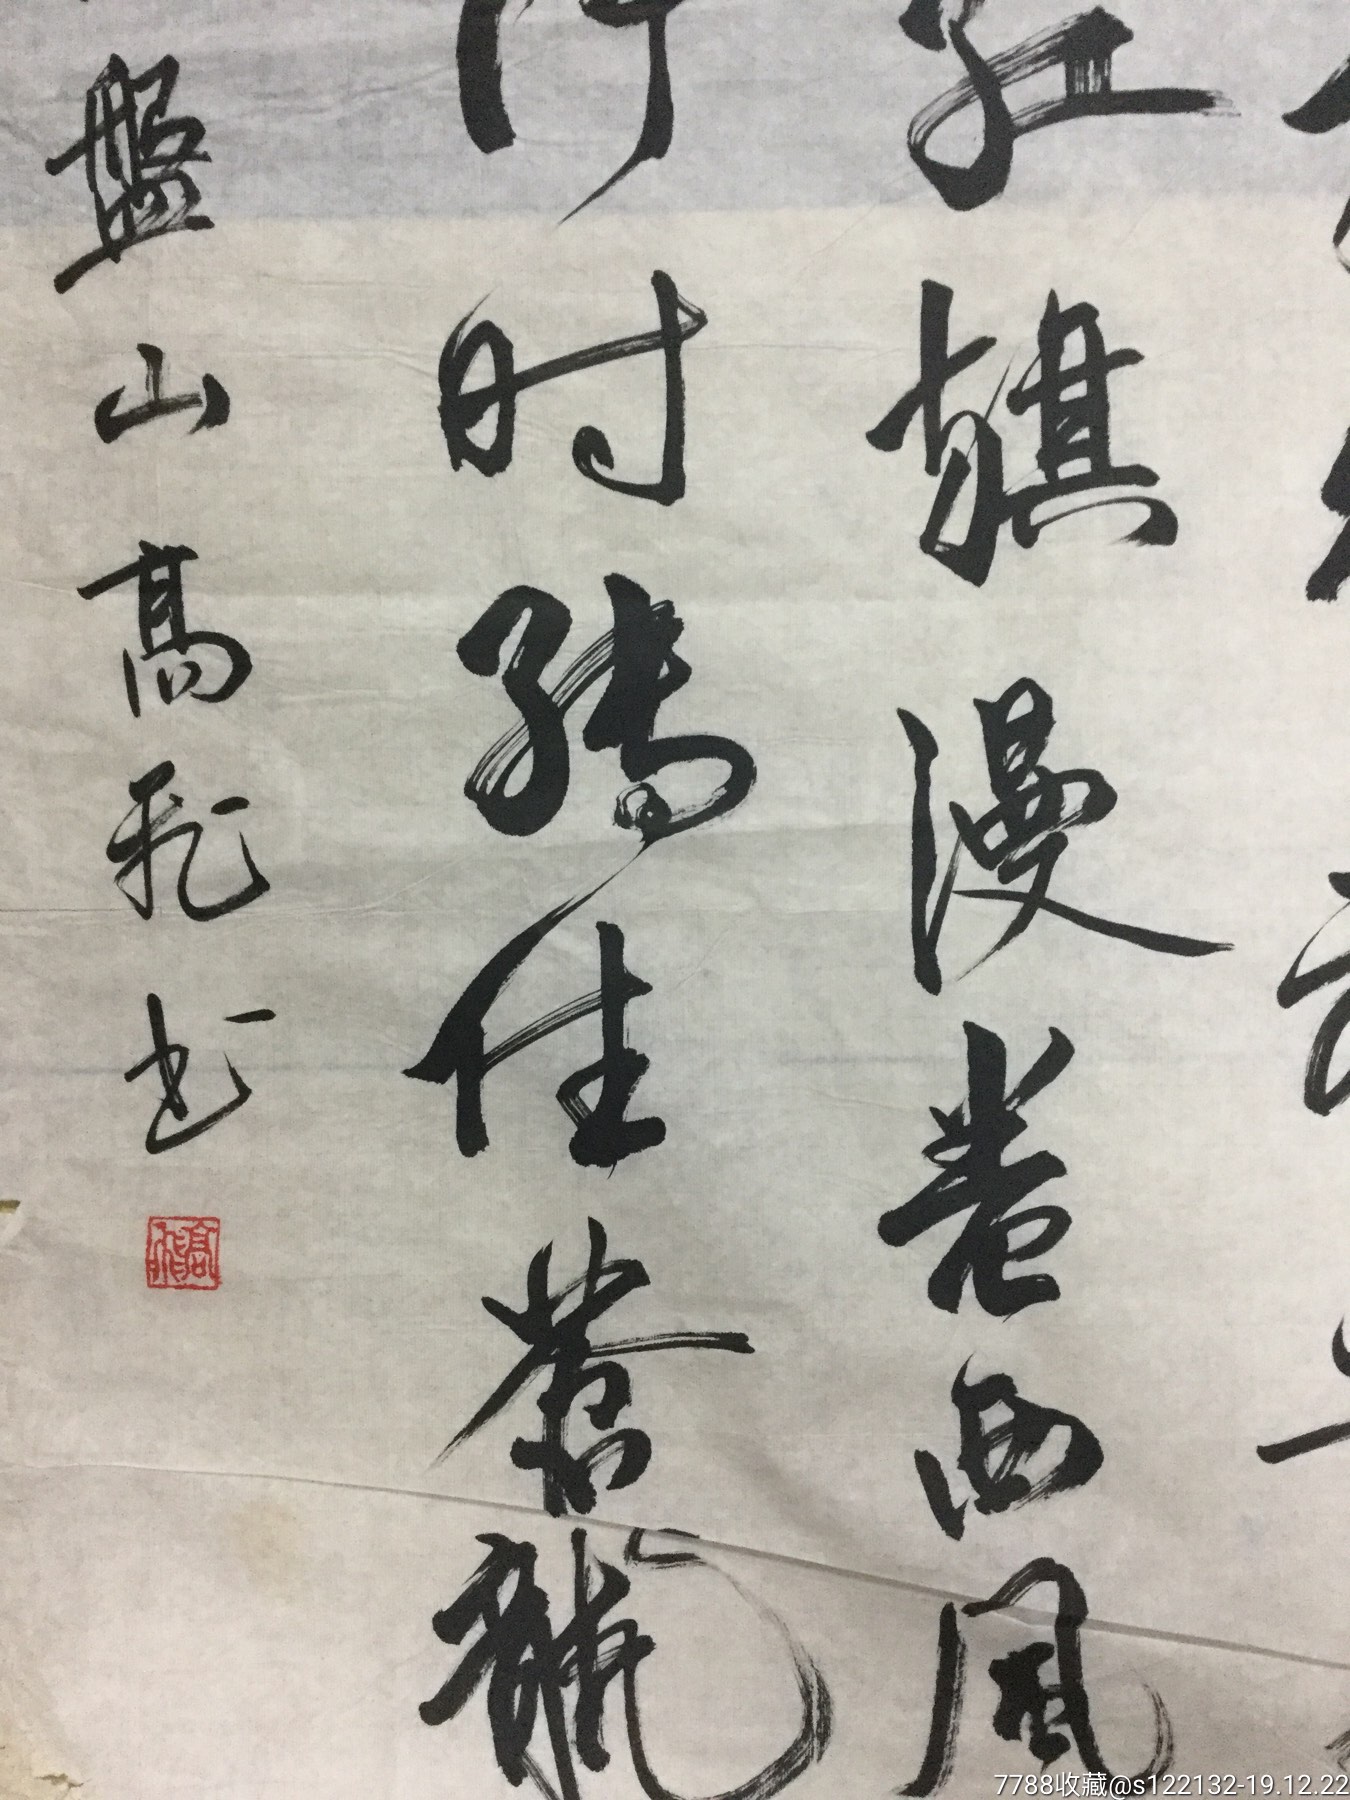 红旗漫卷西風
时縛住蒼龍
盤山高飛书
7788收藏@s122132-19.12.22